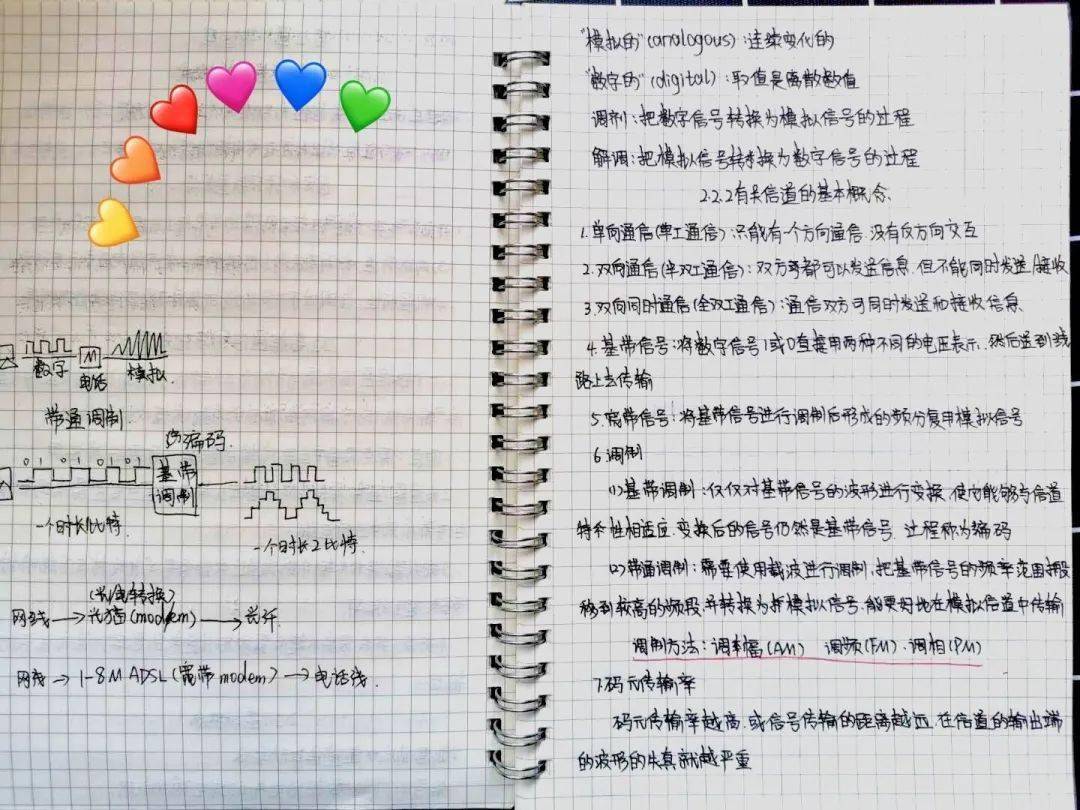 数字
电话
模拟.
带通调制.
编码.
0 1 0 1 0 1 0 1
基带
调制
一个时长1比特.
一个时长2比特.
(光电转换)
网线→光猫(modem)→光纤
网线→1-8M ADSL(宽带modem)→电话线.
"模拟的"(analogous):连续变化的
"数字的"(digital):取值是离散数值
调制:把数字信号转换为模拟信号的过程
解调:把模拟信号转换为数字信号的过程
2.2.2有关信道的基本概念.
1.单向通信(单工通信):只能有一个方向通信.没有反方向交互
2.双向通信(半双工通信):双方都可以发送信息.但不能同时发送/接收
3.双向同时通信(全双工通信):通信双方可同时发送和接收信息.
4.基带信号:将数字信号1或0直接用两种不同的电压表示.然后送到线
路上去传输
5.宽带信号:将基带信号进行调制后形成的频分复用模拟信号
6.调制
(1)基带调制:仅仅对基带信号的波形进行变换.使它能够与信道
特性相适应.变换后的信号仍然是基带信号.过程称为编码
(2)带通调制:需要使用载波进行调制.把基带信号的频率范围搬
移到较高的频段.并转换为模拟信号.能更好地在模拟信道中传输
调制方法:调幅(AM) 调频(FM).调相(PM)
7.码元传输率
码元传输率越高.或信号传输的距离越远.在信道的输出端
的波形的失真就越严重